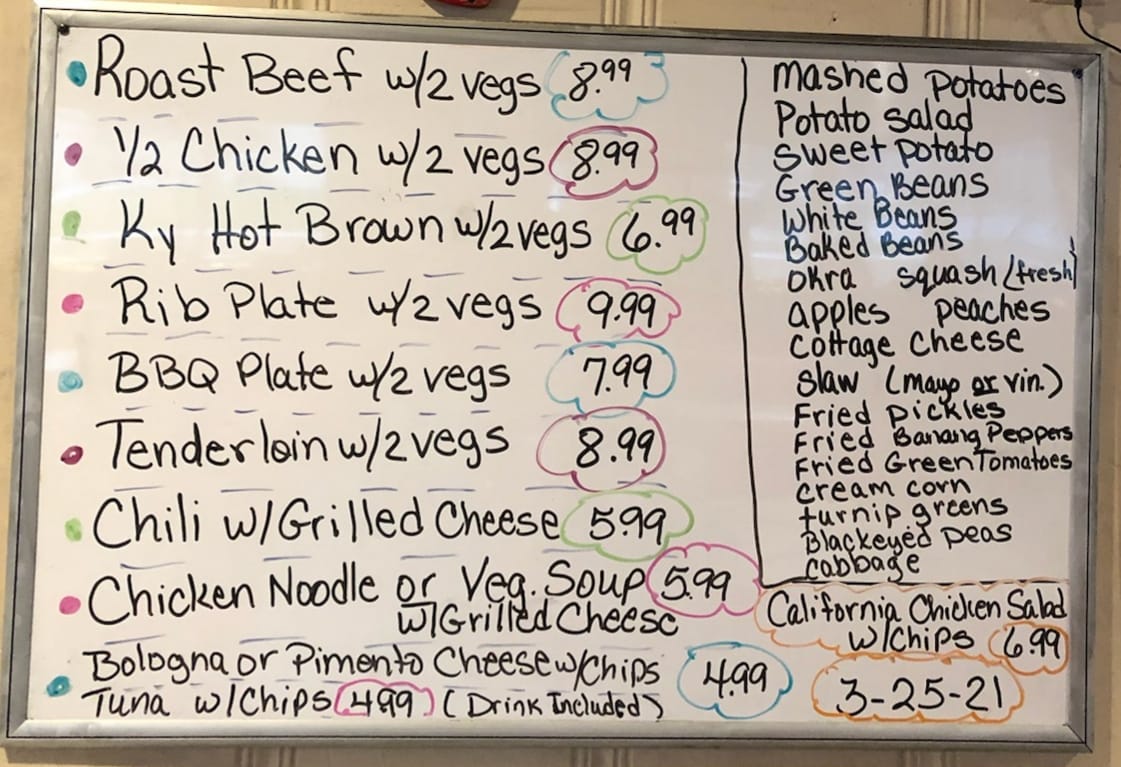 Roast Beef w/2 vegs 8.99
1/2 Chicken w/2 vegs 8.99
Ky Hot Brown w/2 vegs 6.99
Rib Plate w/2 vegs 9.99
BBQ Plate w/2 vegs 7.99
Tenderloin w/2 vegs 8.99
Chili w/Grilled Cheese 5.99
Chicken Noodle or Veg. Soup 5.99
w/Grilled Cheese
Bologna or Pimento Cheese w/Chips 4.99
Tuna w/Chips 4.99 (Drink Included)
Mashed Potatoes
Potato salad
Sweet potato
Green Beans
White Beans
Baked Beans
Okra squash (fresh)
apples peaches
Cottage Cheese
Slaw (mayo or vin.)
Fried Pickles
Fried Banana Peppers
Fried Green Tomatoes
cream corn
turnip greens
Blackeyed Peas
cabbage
California Chicken Salad
w/Chips 6.99
3-25-21